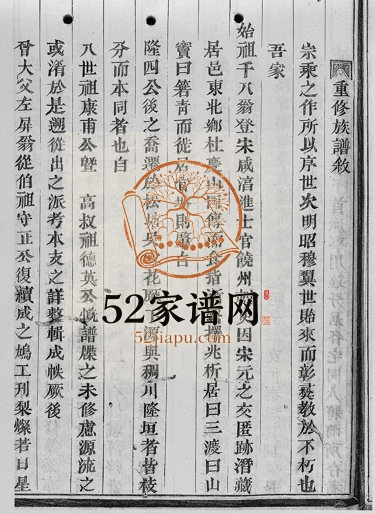 重修族譜敘
宗乘之作所以序世次明昭穆翼世貽來而彰彝敎於不朽也
吾家
始祖千八翁登宋咸淳進士官饒州 因宋元之交匿跡潛藏
居邑東北鄉杜 擇兆析居曰三渡曰山
竇曰箬靑而徙居
隆四公後之喬遷於松 花 源與稠川隆垣者皆枝
分而本同者也自
八世祖康甫公暨 高叔祖德英公慨譜牒之未修慮源流之
或淆於是遡從出之派考本支之詳彙輯成帙厥後
晉大父左屏翁從伯祖守正公復續成之鳩工刊梨燦若日星
52家谱网
52jiapu.com